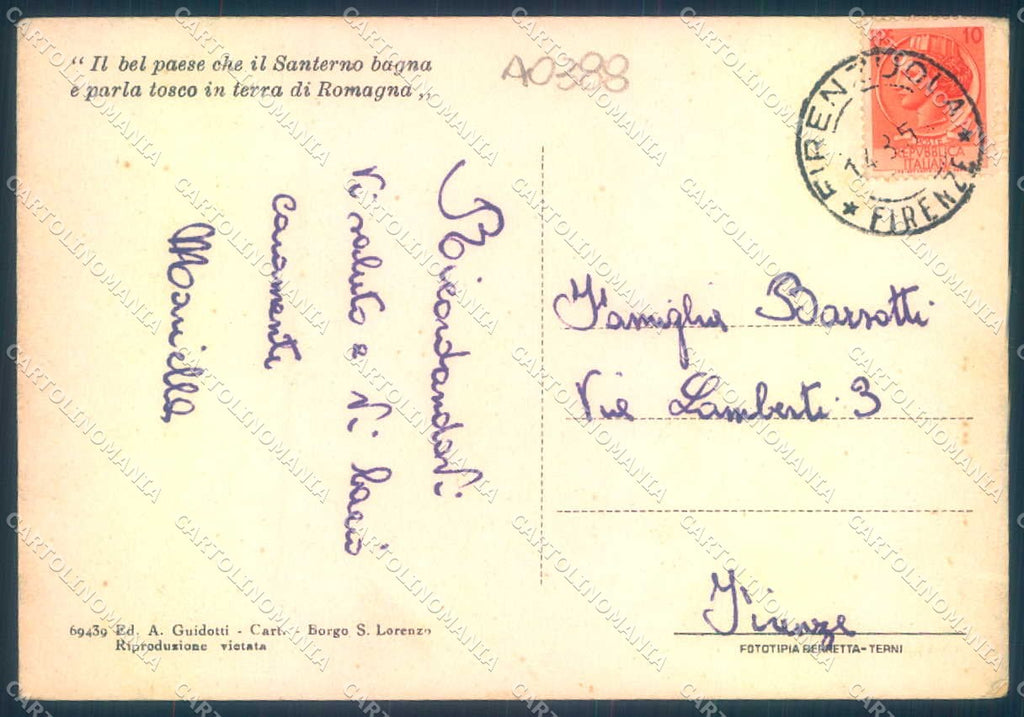 “ Il bel paese che il Santerno bagna
e parla tosco in terra di Romagna „
A0388
10
POSTE
REPVBBLICA
ITALIANA
FIRENZUOLA
* FIRENZE *
RicordandoVi
Vi saluto e Vi bacio
caramente
Mariella
Famiglia Barsotti
Via Lamberti 3
Firenze
69439 Ed. A. Guidotti - Cart. - Borgo S. Lorenzo
Riproduzione vietata
FOTOTIPIA BERRETTA-TERNI
CARTOLINOMANIA